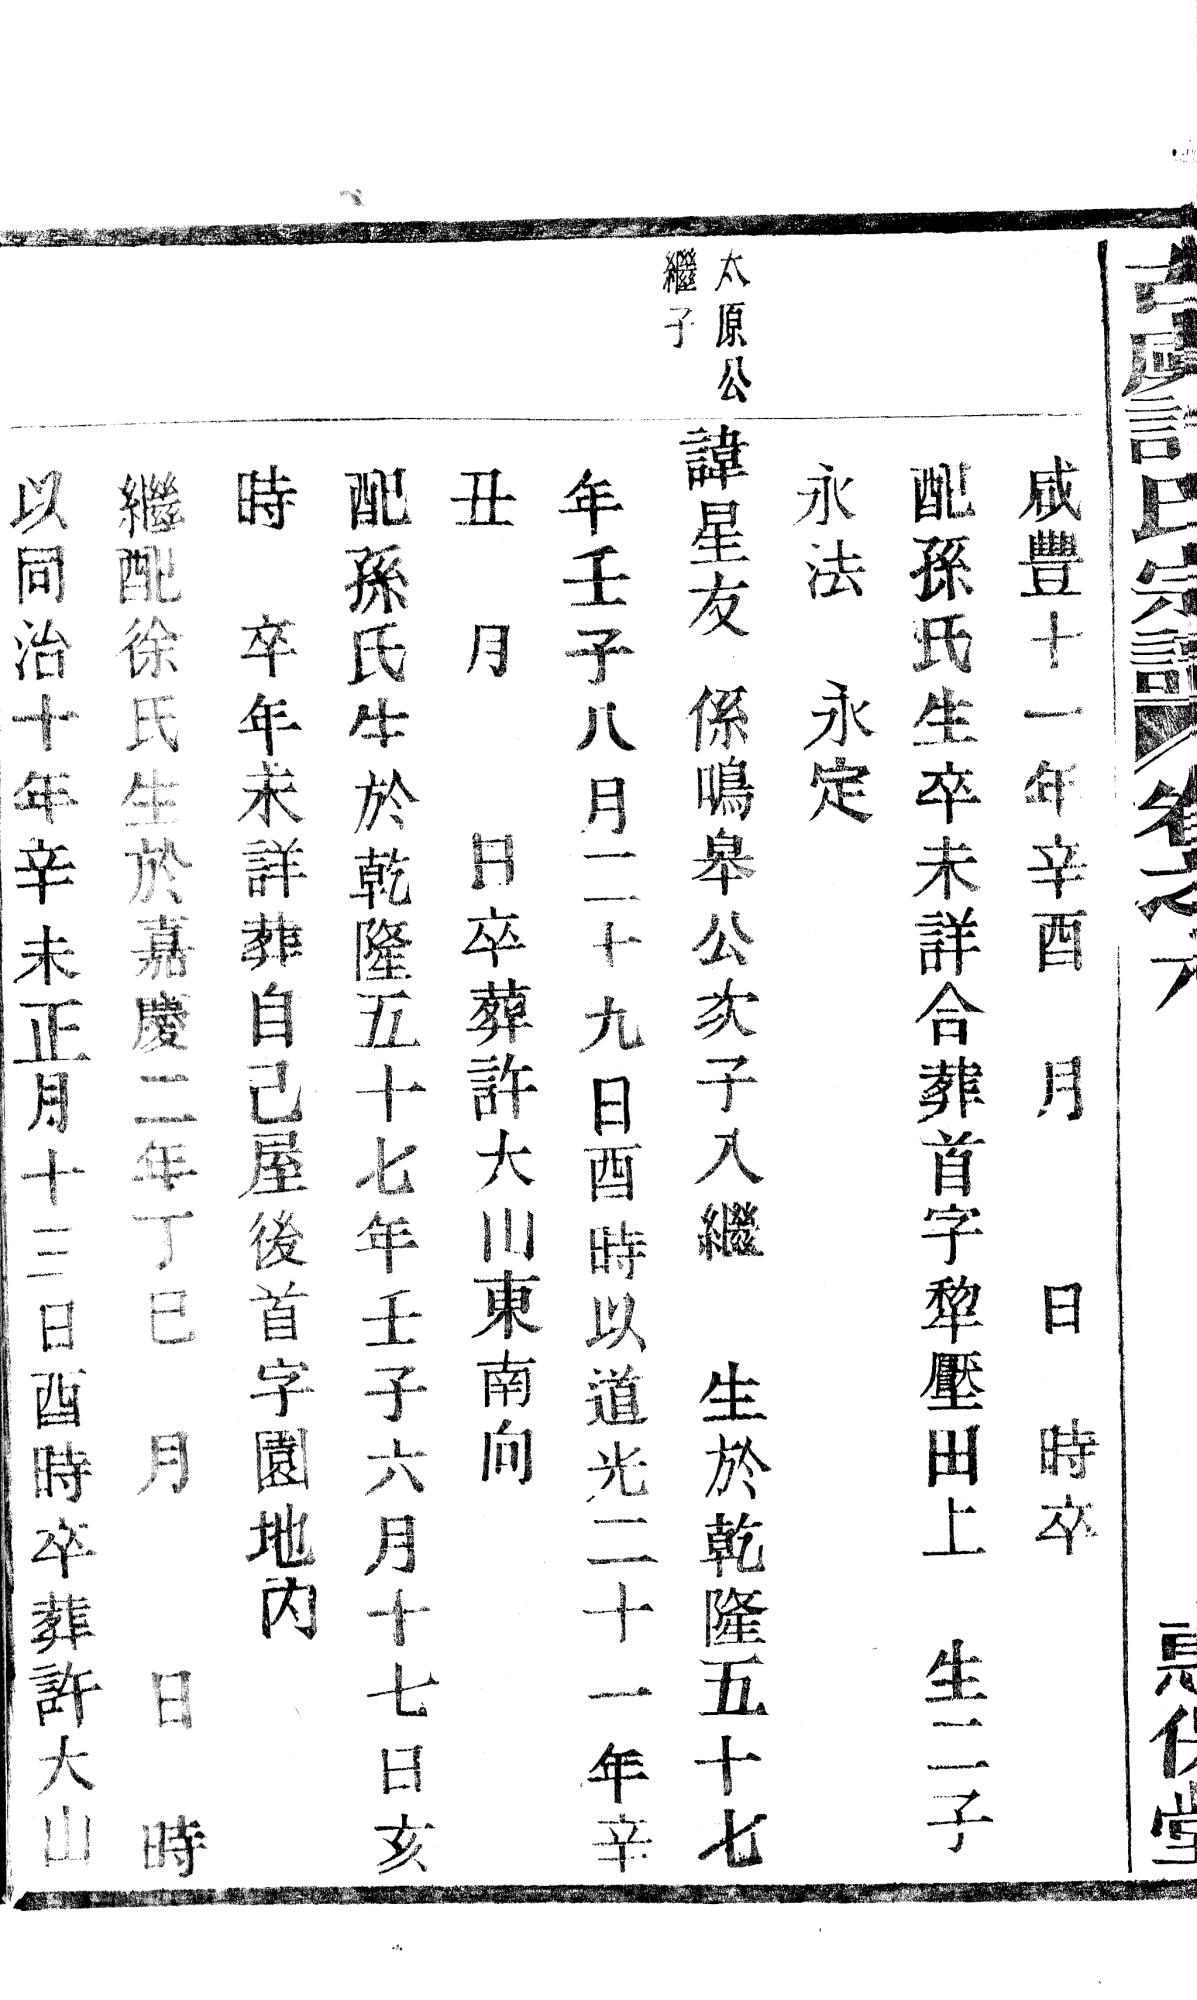 許氏宗譜
咸豐十一年辛酉　月　　日　時卒
配孫氏生卒未詳合葬首字犂壓田上　生二子
永法　永定
太原公
繼子
諱星友　係鳴皋公次子入繼　生於乾隆五十七
年壬子八月二十九日酉時以道光二十一年辛
丑　月　　日卒葬許大山東南向
配孫氏生於乾隆五十七年壬子六月十七日亥
時　卒年未詳葬自己屋後首字園地內
繼配徐氏生於嘉慶二年丁巳　月　　日　時
以同治十年辛未正月十三日酉時卒葬許大山